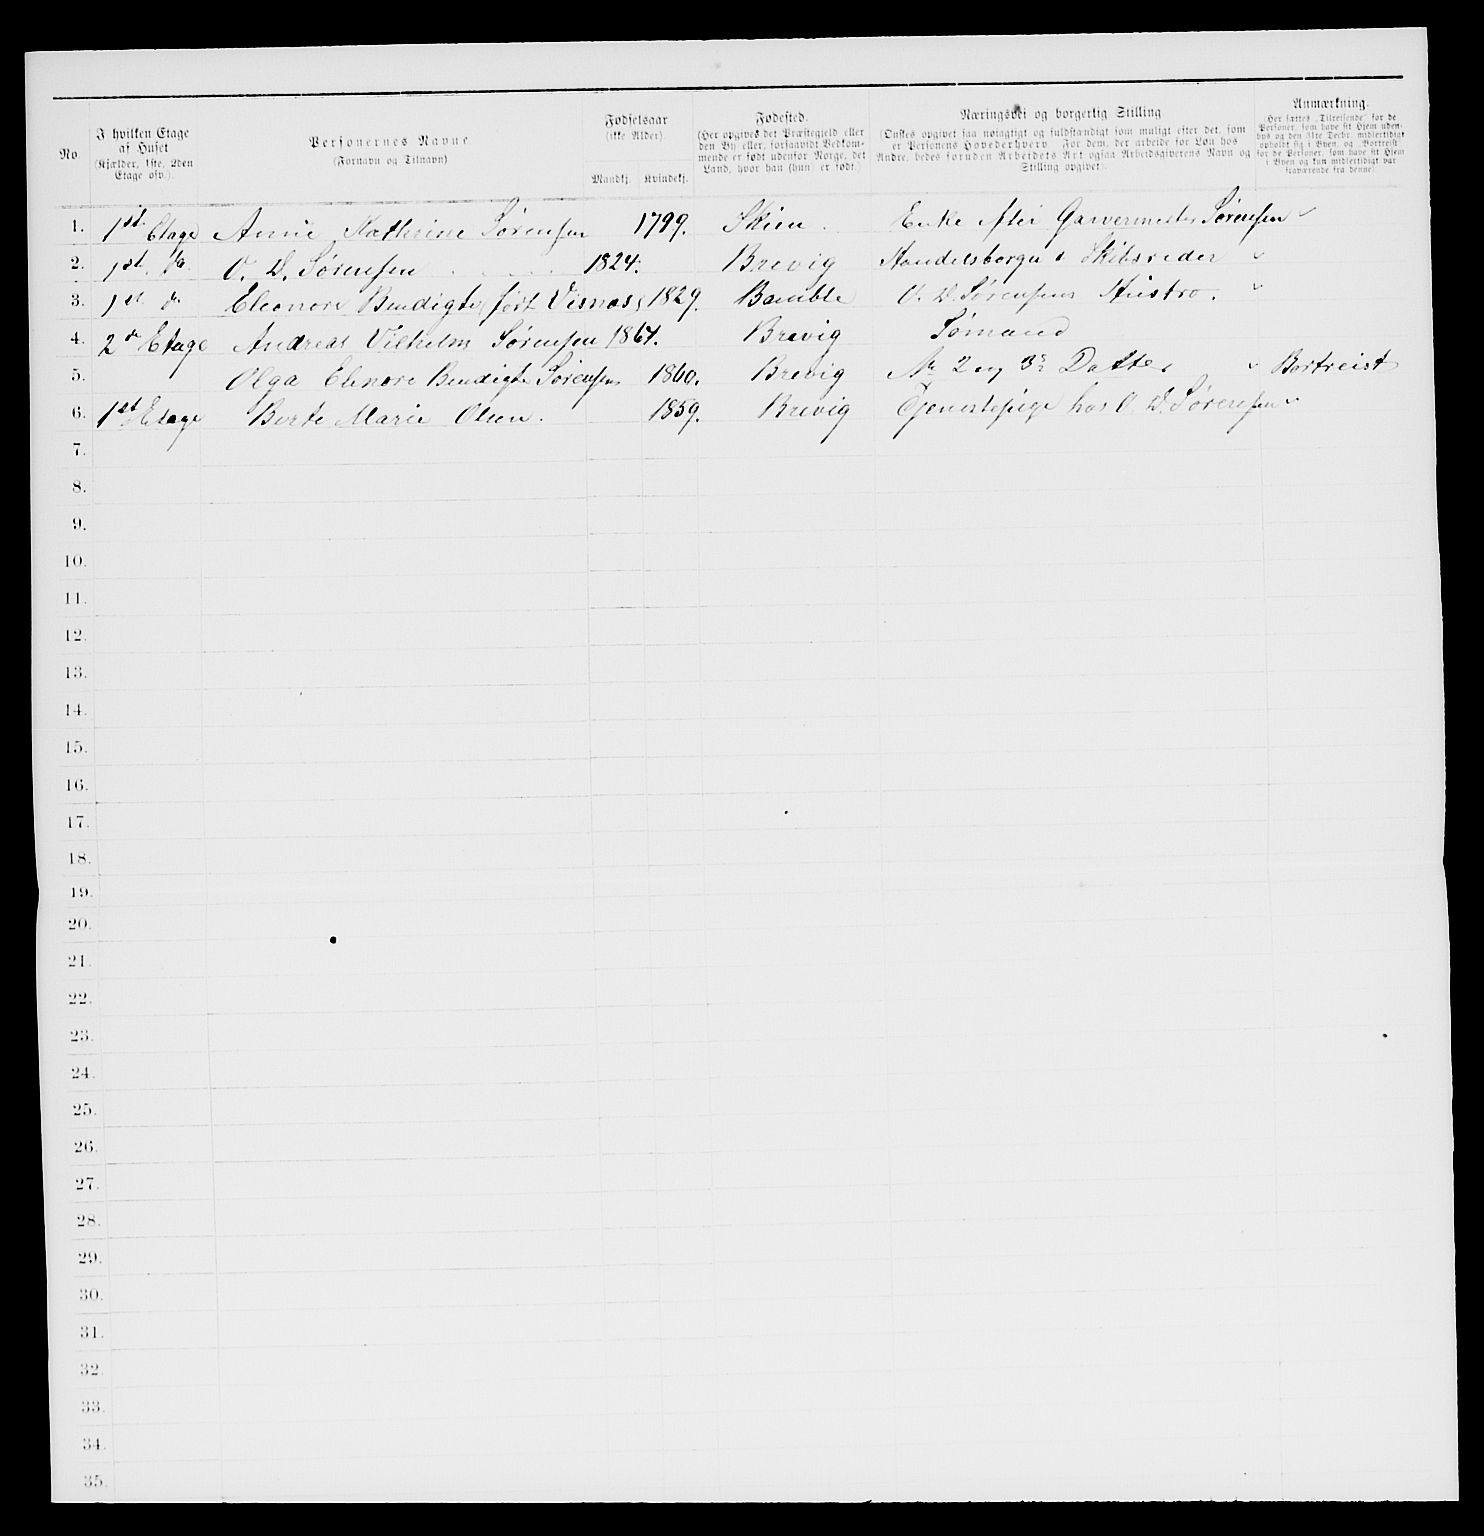 No.
I hvilken Etage af Huset (Kjælder, 1ste, 2den Etage osv.).
Personernes Navne (Fornavn og Tilnavn)
Fødselsaar (ikke Alder).
Mandkj. Kvindekj.
Fødested.
(Her opgives det Præstegjeld eller den By eller, forsaavidt Vedkommende er født udenfor Norge, det Land, hvor han (hun) er født.)
Næringsvei og borgerlig Stilling
(Ønskes opgivet saa nøiagtigt og fuldstændigt som muligt efter det, som er Personens Hovederhverv. For dem, der arbeide for Løn hos Andre, bedes foruden Arbeidets Art ogsaa Arbeidsgiverens Navn og Stilling opgivet).
Anmærkning.
(Her sættes „Tilreisende" for de Personer, som have sit Hjem udenbys og den 31te Decbr. midlertidigt opholdt sig i Byen, og „Bortreist" for de Personer, som have sit Hjem i Byen og kun midlertidigt var fraværende fra denne).
1. 1st Etage Anne Kathrine Sørensen 1799. Skien. Enke efter Garvermester Sørensen
2. 1st do. O. D. Sørensen 1824. Brevig Handelsborger & Skibsreder
3. 1st do Eleonore Bendigte, født Visnæs, 1829. Bamble O. D. Sørensens Hustro.
4. 2d Etage Andreas Vilhelm Sørensen 1864. Brevig Sømand
5. Olga Elenore Bendigte Sørensen 1860. Brevig No 2 og 3s Datter Bortreist
6. 1st Etage Berte Marie Olsen. 1859. Brevig Tjenestepige hos O. D. Sørensen
7.
8.
9.
10.
11.
12.
13.
14.
15.
16.
17.
18.
19.
20.
21.
22.
23.
24.
25.
26.
27.
28.
29.
30.
31.
32.
33.
34.
35.